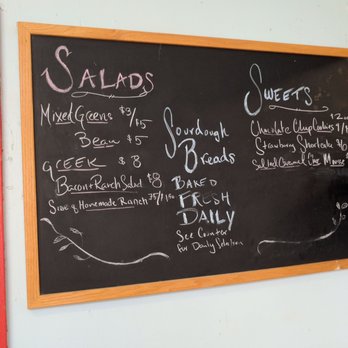 SALADS
Mixed Greens $3/$5
Bean $5
GREEK $8
Bacon + Ranch Salad $8
Side of Homemade Ranch 75/$1.50
Sourdough
Breads
BAKED
FRESH
DAILY
See Counter
For Daily Selection
SWEETS
$2
Chocolate Chip Cookies
Strawberry Shortcake $6
Salted Caramel Choc Mousse